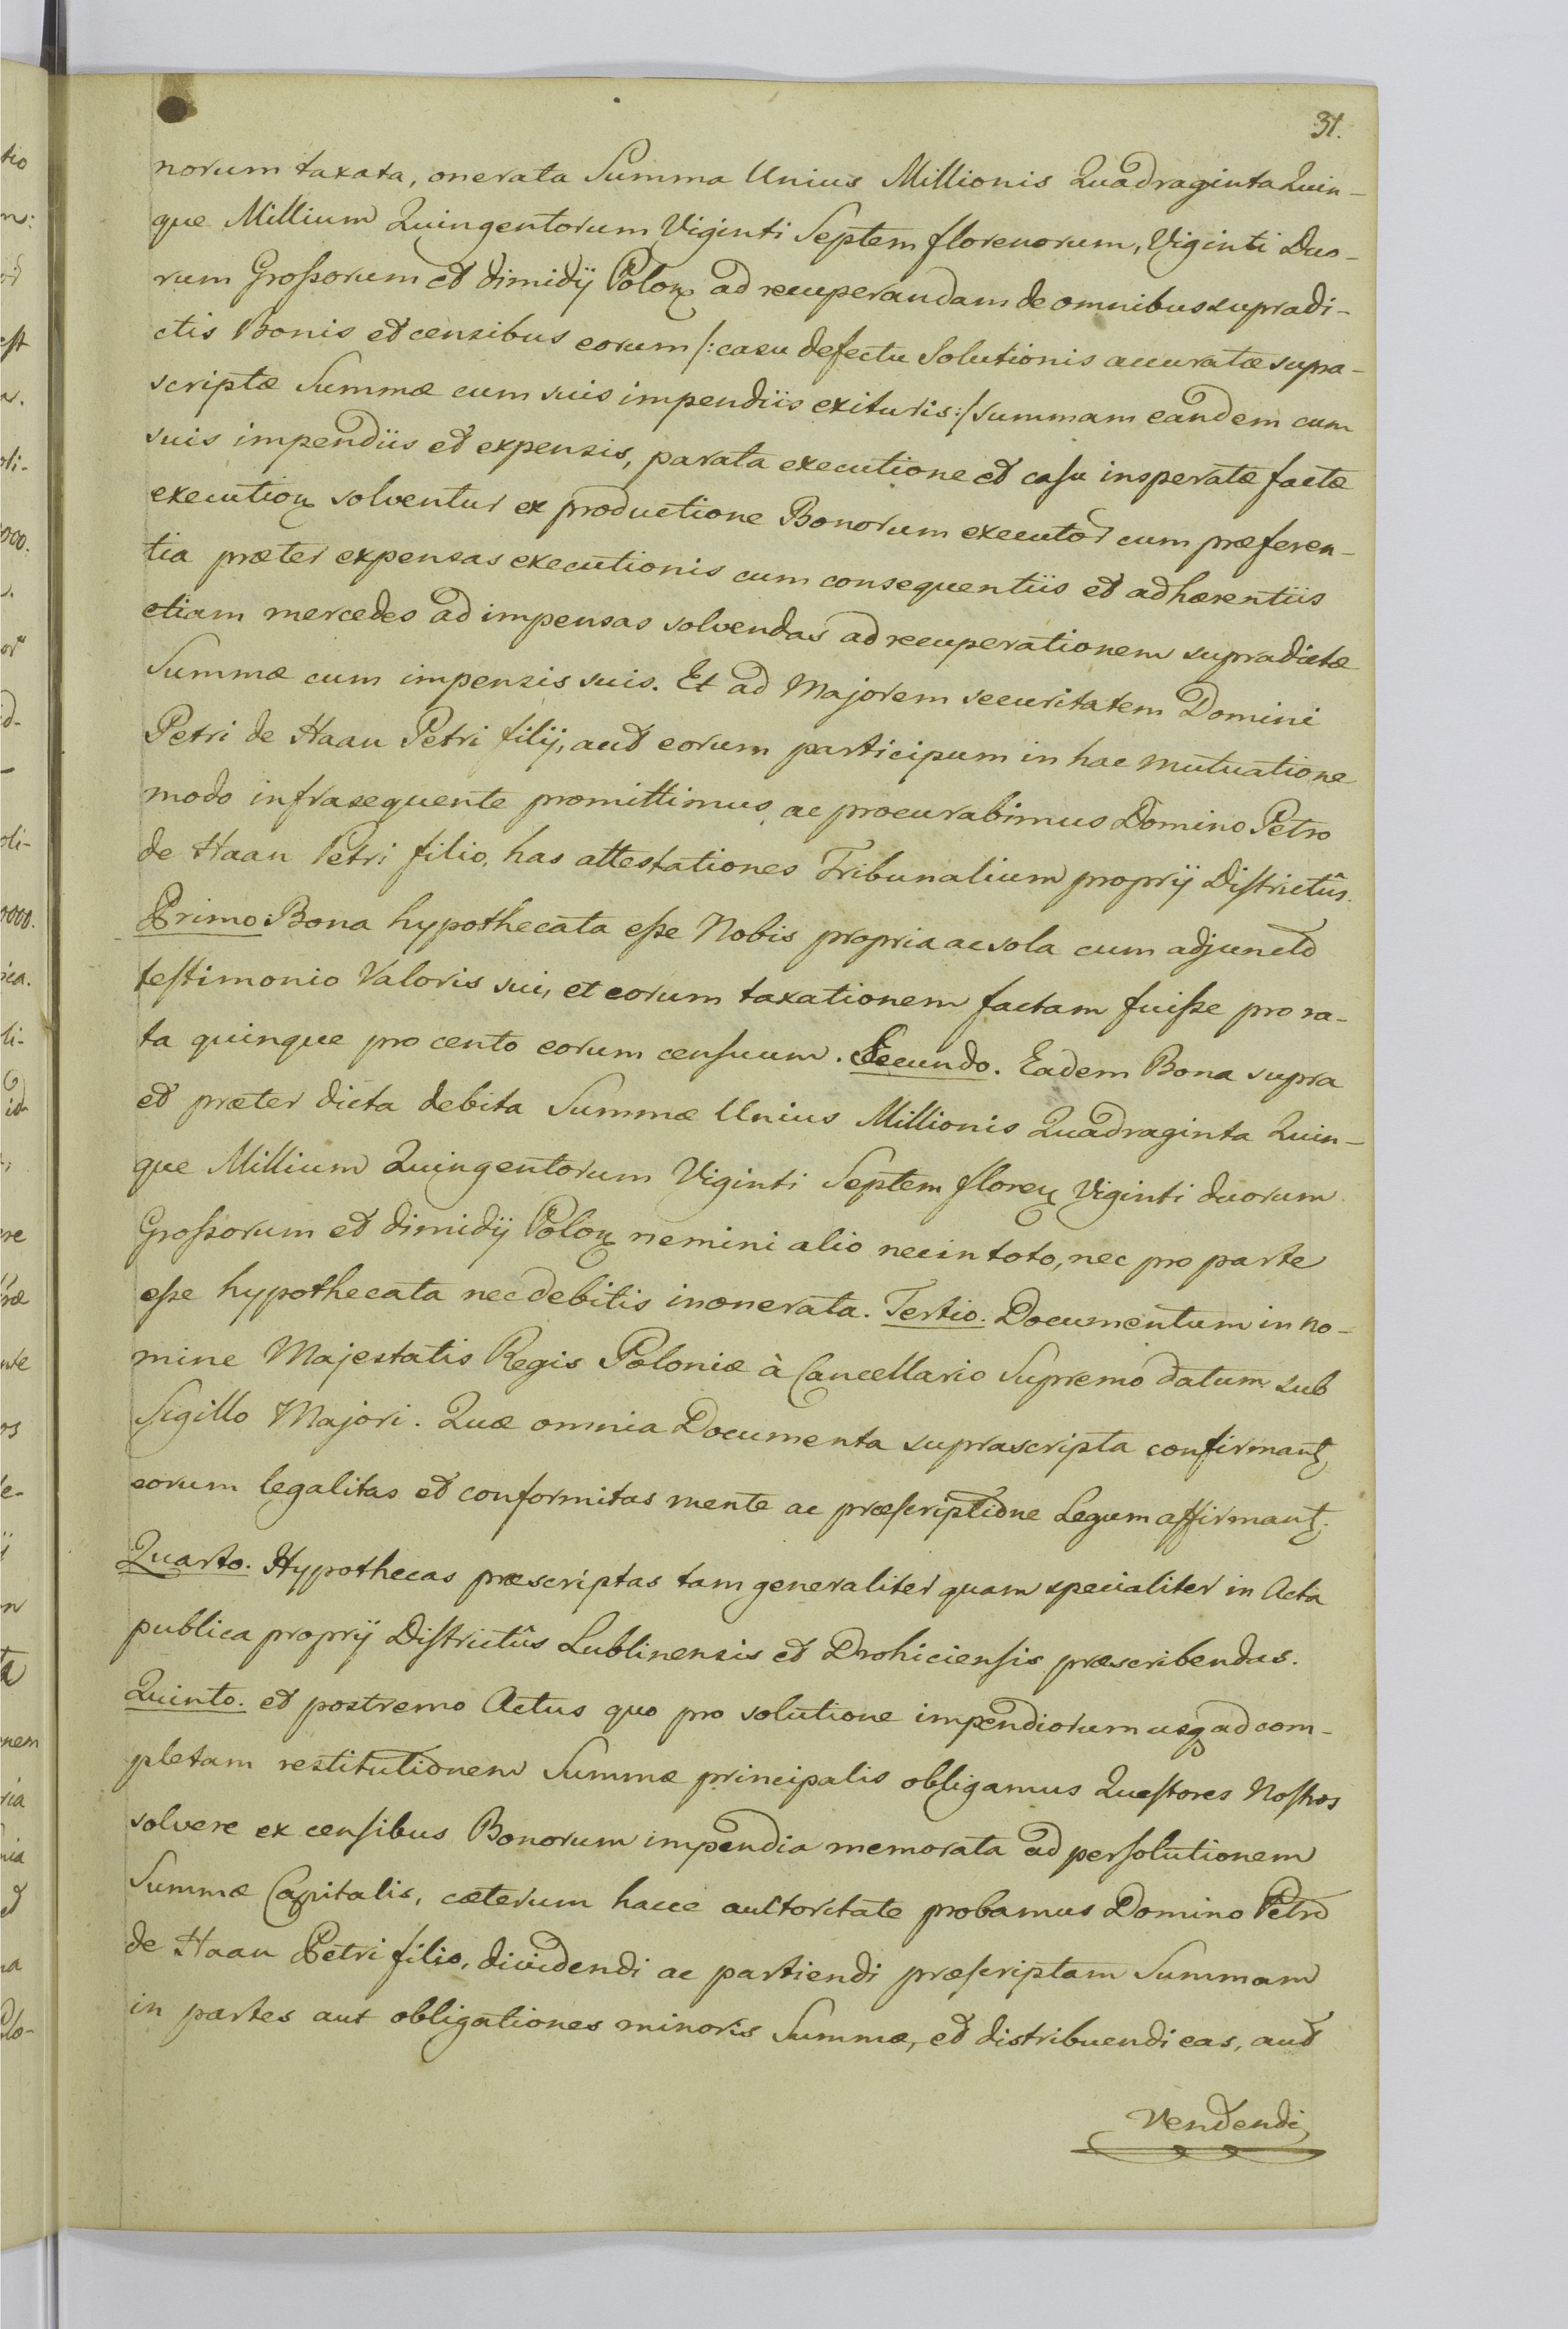 31.
norum taxata, onerata Summa Unius Millionis Quadraginta Quin-
que Millium Quingentorum Viginti Septem florenorum, Viginti Duo-
rum Großorum et dimidÿ Polon ad recuperandam de omnibus supradi-
ctis Bonis et censibus eorum /: casu defectu Solutionis accuratæ supra-
scriptæ Summæ cum suis impendiis exituris :/ summam eandem cum
suis impendiis et expensis, parata executione et casu insperatæ factæ
execution solventur ex productione Bonorum executor cum præferen-
tia præter expensas executionis cum consequentiis et adhærentiis
etiam mercedes ad impensas solvendas ad recuperationem supradictæ
Summæ cum impensis suis. Et ad Majorem securitatem Domini
Petri de Haan Petri filÿ, aut eorum participum in hac mutuatione
modo infrasequente promittimus, ac procurabimus Domino Petro
de Haan Petri filio, has attestationes Tribunalium proprÿ Districtûs.
Primo: Bona hypothecata eße Nobis propria ac sola cum adjuncto
testimonio Valoris sui, et eorum taxationem factam fuiße pro ra-
ta quinque pro cento eorum censuum. Secundo. Eadem Bona supra
et præter dicta debita Summæ Unius Millionis Quadraginta Quin-
que Millium Quingentorum Viginti Septem floren Viginti duorum
Großorum et dimidÿ Polon nemini alio nec in toto, nec pro parte
eße hypothecata nec debitis inonerata. Tertio. Documentum in no-
mine Majestatis Regis Poloniæ à Cancellario Supremo datum sub
Sigillo Majori. Quæ omnia Documenta suprascripta confirmant,
eorum legalitas et conformitas mente ac præscriptione Legum affirmant.
Quarto. Hypothecas præscriptas tam generaliter quam specialiter in Acta
publica proprÿ Districtûs Lublinensis et Drohiciensis præscribendas.
Quinto. et postremo Actus quo pro solutione impendiorum usq ad com-
pletam restitutionem Summæ principalis obligamus Questores Nostros
solvere ex censibus Bonorum impendia memorata ad persolutionem
Summæ Capitalis, cæterum hacce auctoritate probamus Domino Petro
de Haan Petri filio, dividendi ac partiendi præscriptam Summam
in partes aut obligationes minoris Summæ, et distribuendi eas, aut
Vendendi